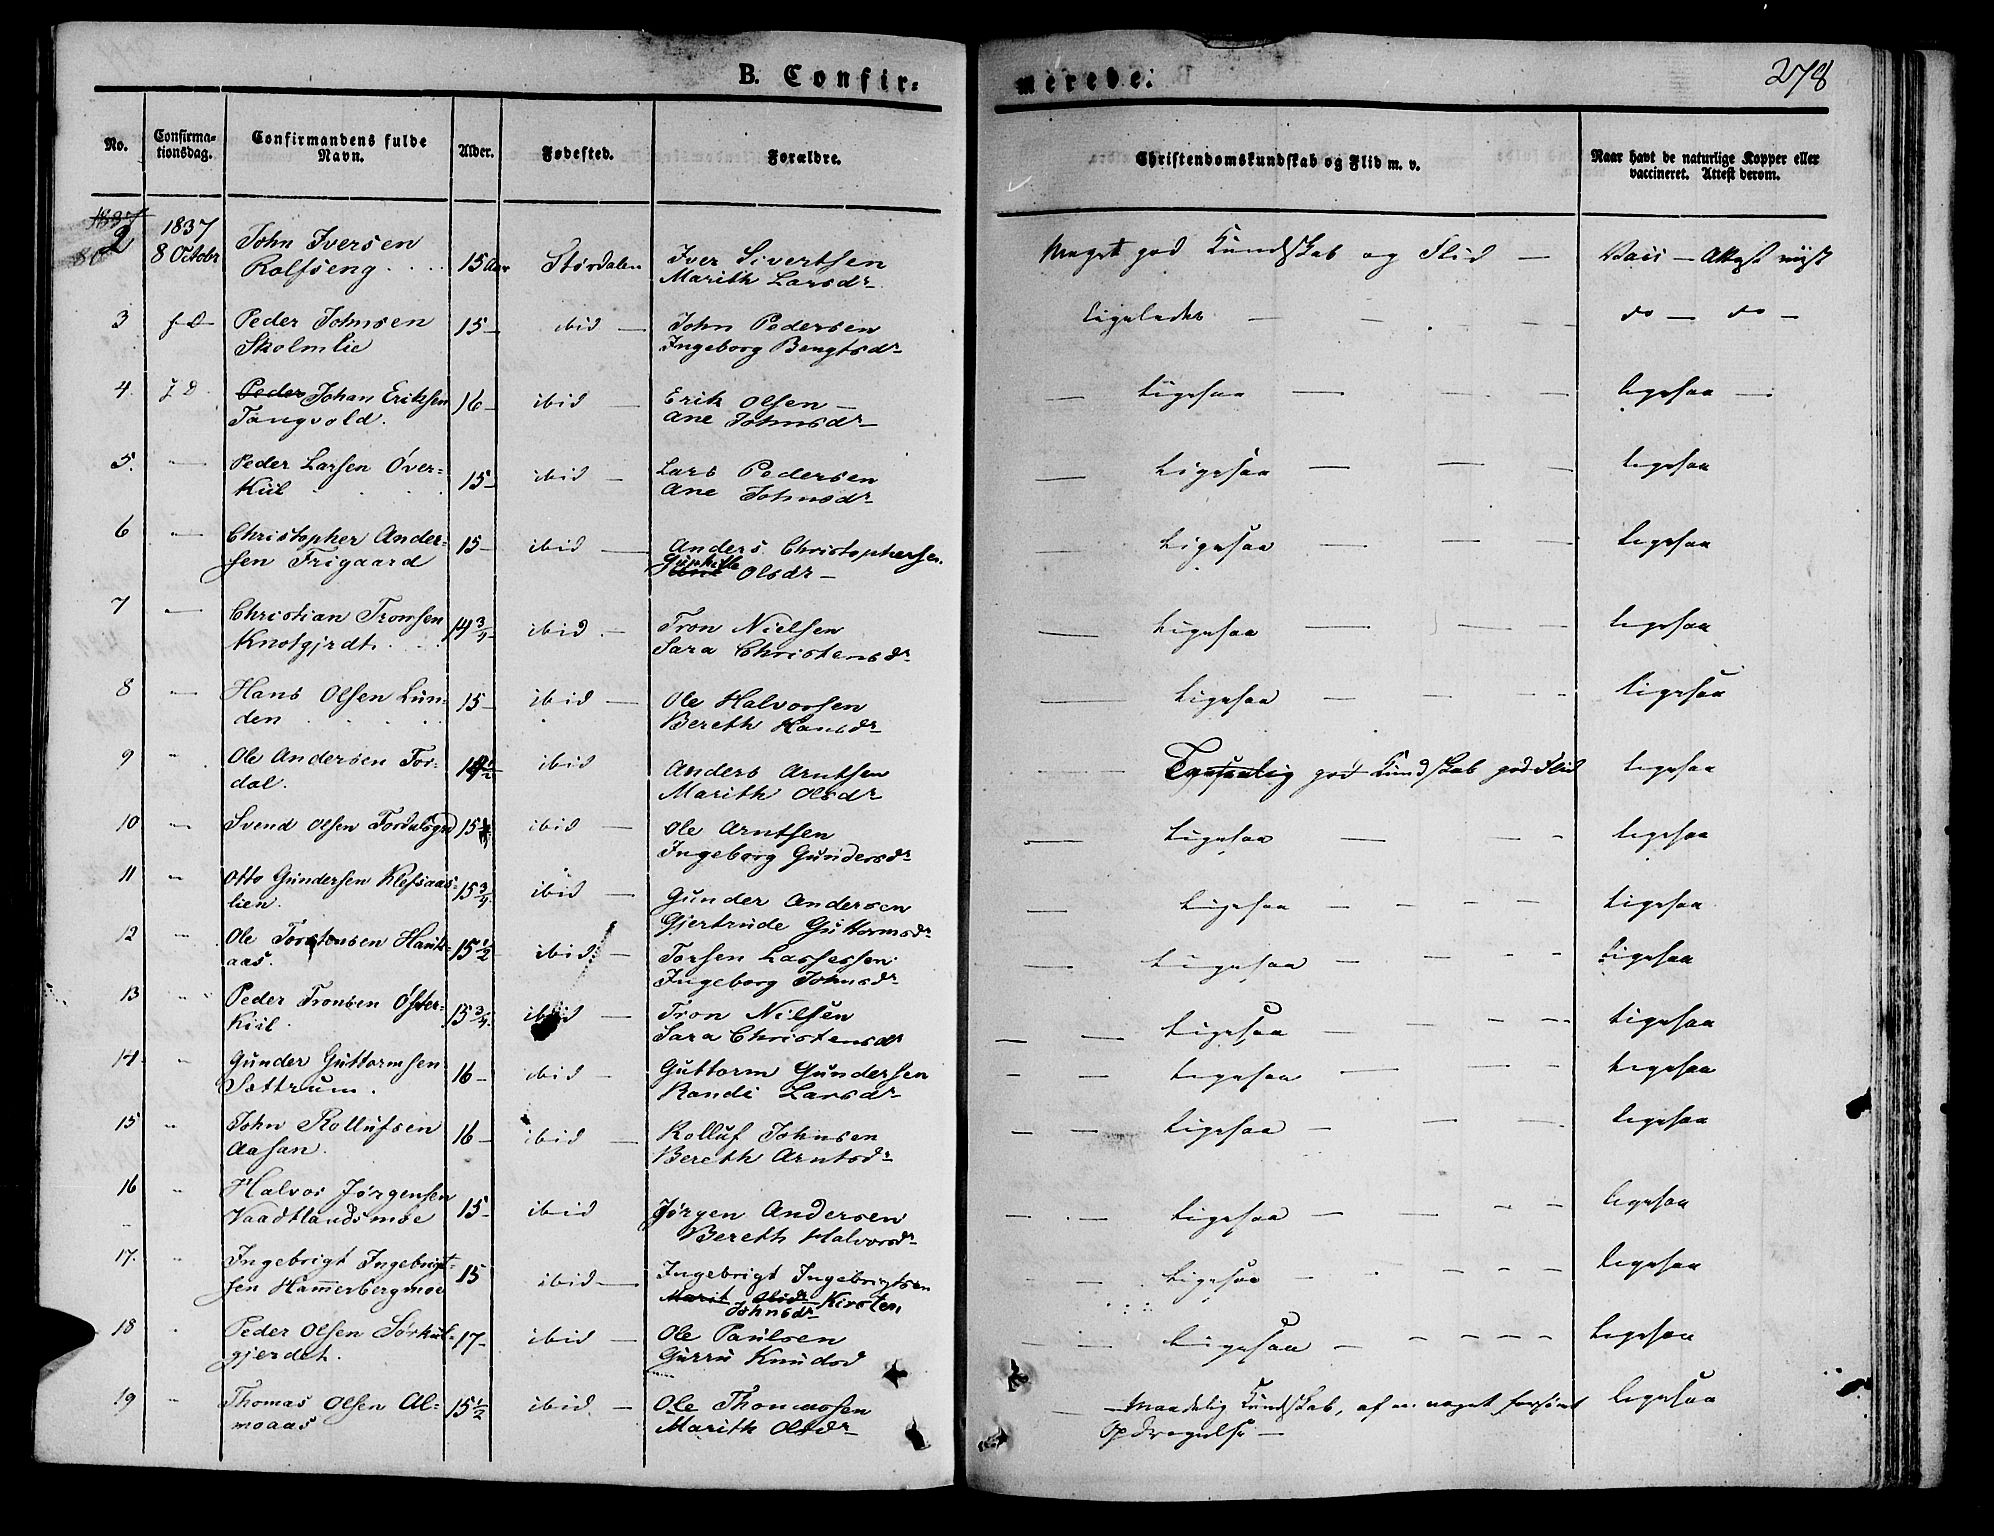 B. Confir=
merede.
278
No.
Confirma-
tionsdag.
Confirmandens fulde
Navn.
Alder.
Fødested.
Forældre.
Christendomskundskab og Flid m. v.
Naar havt de naturlige Kopper eller
vaccineret. Attest derom.
1837
2 1837
8 Octobr John Iversen
Rolfseng 15 Aar Størdalen Iver Sivertsen
Marith Larsdr Meget god Kundskab og Flid — Vacc — Attest
3 Peder Johnsen
Skolmlie 15— ibid — John Pedersen
Ingeborg Bengtsdr Ligeledes — do — do —
4. Peder Johan Eriksen
Tangvold. 16— ibid — Erik Olsen —
Ane Johnsdr — Ligesaa — ligesaa —
5. — Peder Larsen Över-
Kiil 15— ibid — Lars Pedersen
Ane Johnsdr — Ligesaa — ligesaa
6 — Christopher Ander-
sen Frigaard 15— ibid — Anders Christophersen
Olsdr — Ligesaa — ligesaa
7 — Christian Tronsen
14 3/4 ibid — Tron Nielsen
Sara Christensdr — Ligesaa — ligesaa
8 — Hans Olsen Lun-
den 15— ibid — Ole Halvorsen
Bereth Hansdr — Ligesaa — ligesaa
9 " Ole Andersen For-
dal. ibid Anders Arntsen
Marith Olsdr god Kundskab god Flid ligesaa
10 — Svend Olsen 15 ibid — Ole Arntsen
Ingeborg Gundersdr — Ligesaa — ligesaa
11 " Otto Gundersen Klefsaas-
lien. 15 3/4 ibid — Gunder Andersen
Gjertrude Guttormsdr — Ligesaa — ligesaa
12 " Ole Torstensen
aas. 15 1/2 ibid — Torsen Lassesen
Ingeborg Johnsdr — Ligesaa — ligesaa
13 " Peder Tronsen Öster-
Kiil. 15 3/4 ibid — Tron Nielsen
Sara Christensdr — Ligesaa — ligesaa
14 " Gunder Guttormsen
Sottrum. 16— ibid — Guttorm Gundersen
Randi Larsdr — Ligesaa — ligesaa
15 " John Rollufsen
Aasan. 16— ibid — Rolluf Johnsen
Bereth Arntsdr — Ligesaa — ligesaa
16 " Halvor Jörgensen
Vaadtlandsmoe 15— ibid Jörgen Andersen
Bereth Halvorsdr — Ligesaa — ligesaa
17. " Ingebrigt Ingebrigt-
sen Hammerbergmoe 15 ibid — Ingebrigt Ingebrigtsen
Marit Olsdr Kirsten
Johnsdr — Ligesaa — ligesaa
18 Peder Olsen Sörkiil-
gjerdet. 17— ibid — Ole Paulsen
Gurru Knudsd — Ligesaa — ligesaa
19 " Thomas Olsen Al-
moaas 15 1/2 ibid. — Ole Thomassen
Marith Olsdr — Maadelig Kundskab, af en noget forsömt
Opdragelse — ligesaa